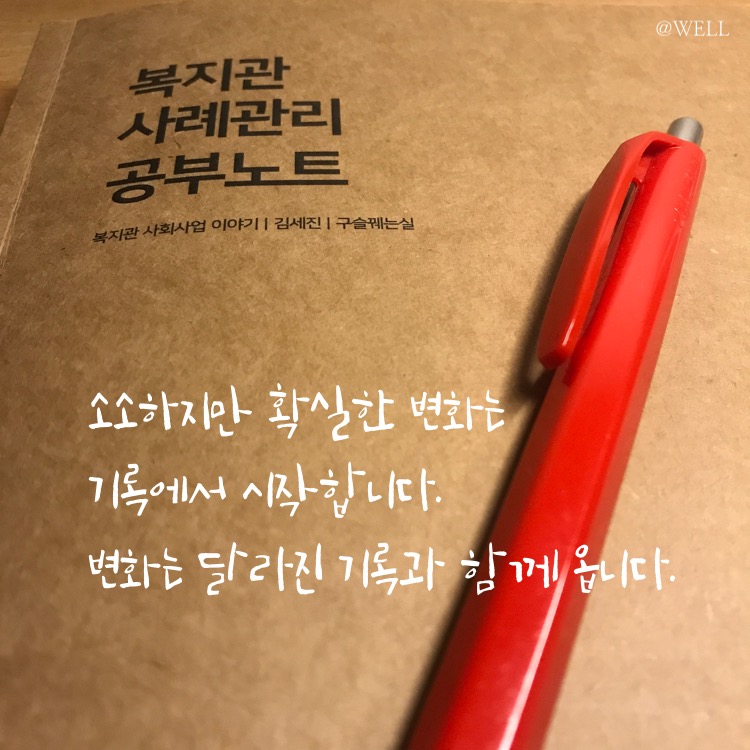 @WELL
복지관
사례관리
공부노트
복지관 사회사업 이야기 | 김세진 | 구슬꿰는실
소소하지만 확실한 변화는
기록에서 시작합니다.
변화는 달라진 기록과 함께 옵니다.